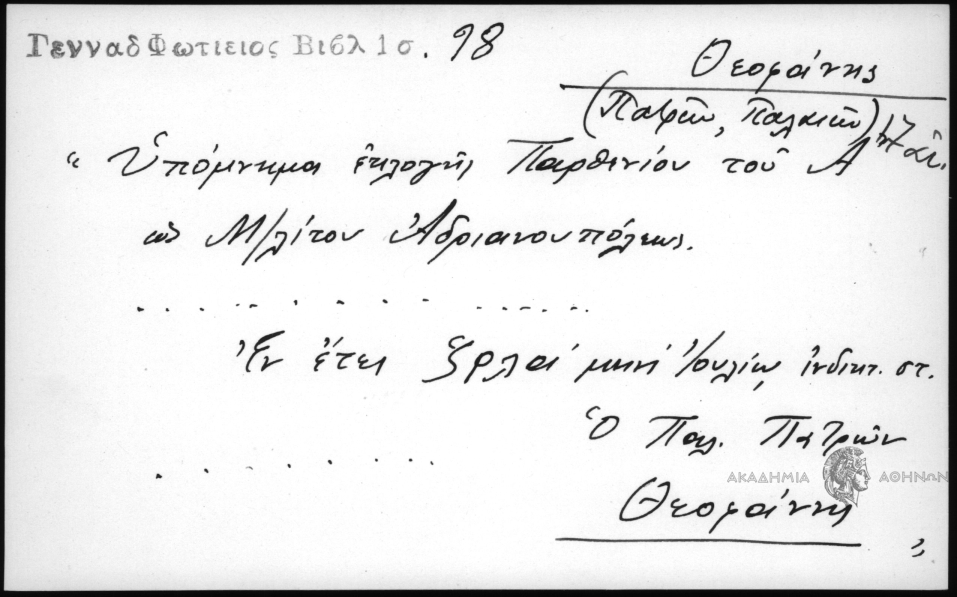 Γενναδ Φωτιειος Βιβλ 1 σ. 98
Θεοφάνης
(Πατρῶν, Παλαιῶν) 17 αἰ.
“ Ὑπόμνημα ἐκλογῆς Παρθενίου τοῦ Α
ὡς Μ/λίτου Ἀδριανουπόλεως.
Ἐν ἔτει ζρλαʹ μηνί Ἰουλίῳ ἰνδικτ. στ.
Ὁ Παλ. Πατρῶν
ΑΚΑΔΗΜΙΑ ΑΘΗΝΩΝ
Θεοφάνης
”